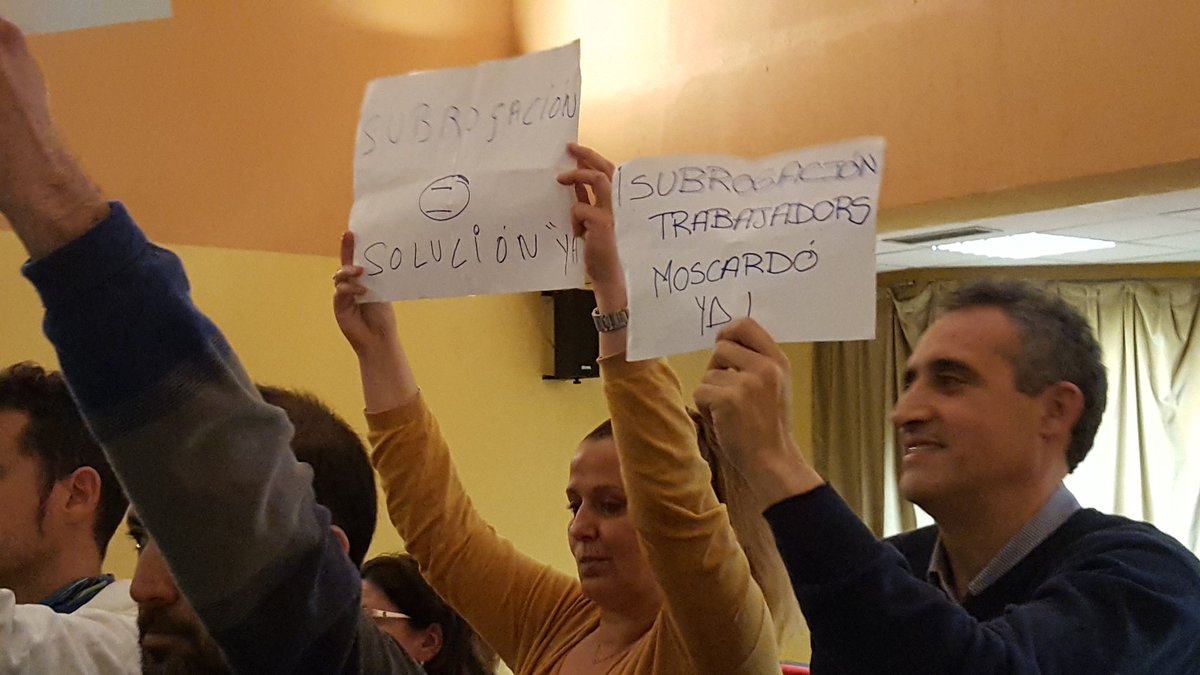 SUBROGACIÓN
=
SOLUCIÓN "YA
¡SUBROGACIÓN
TRABAJADORS
MOSCARDÓ
YA!